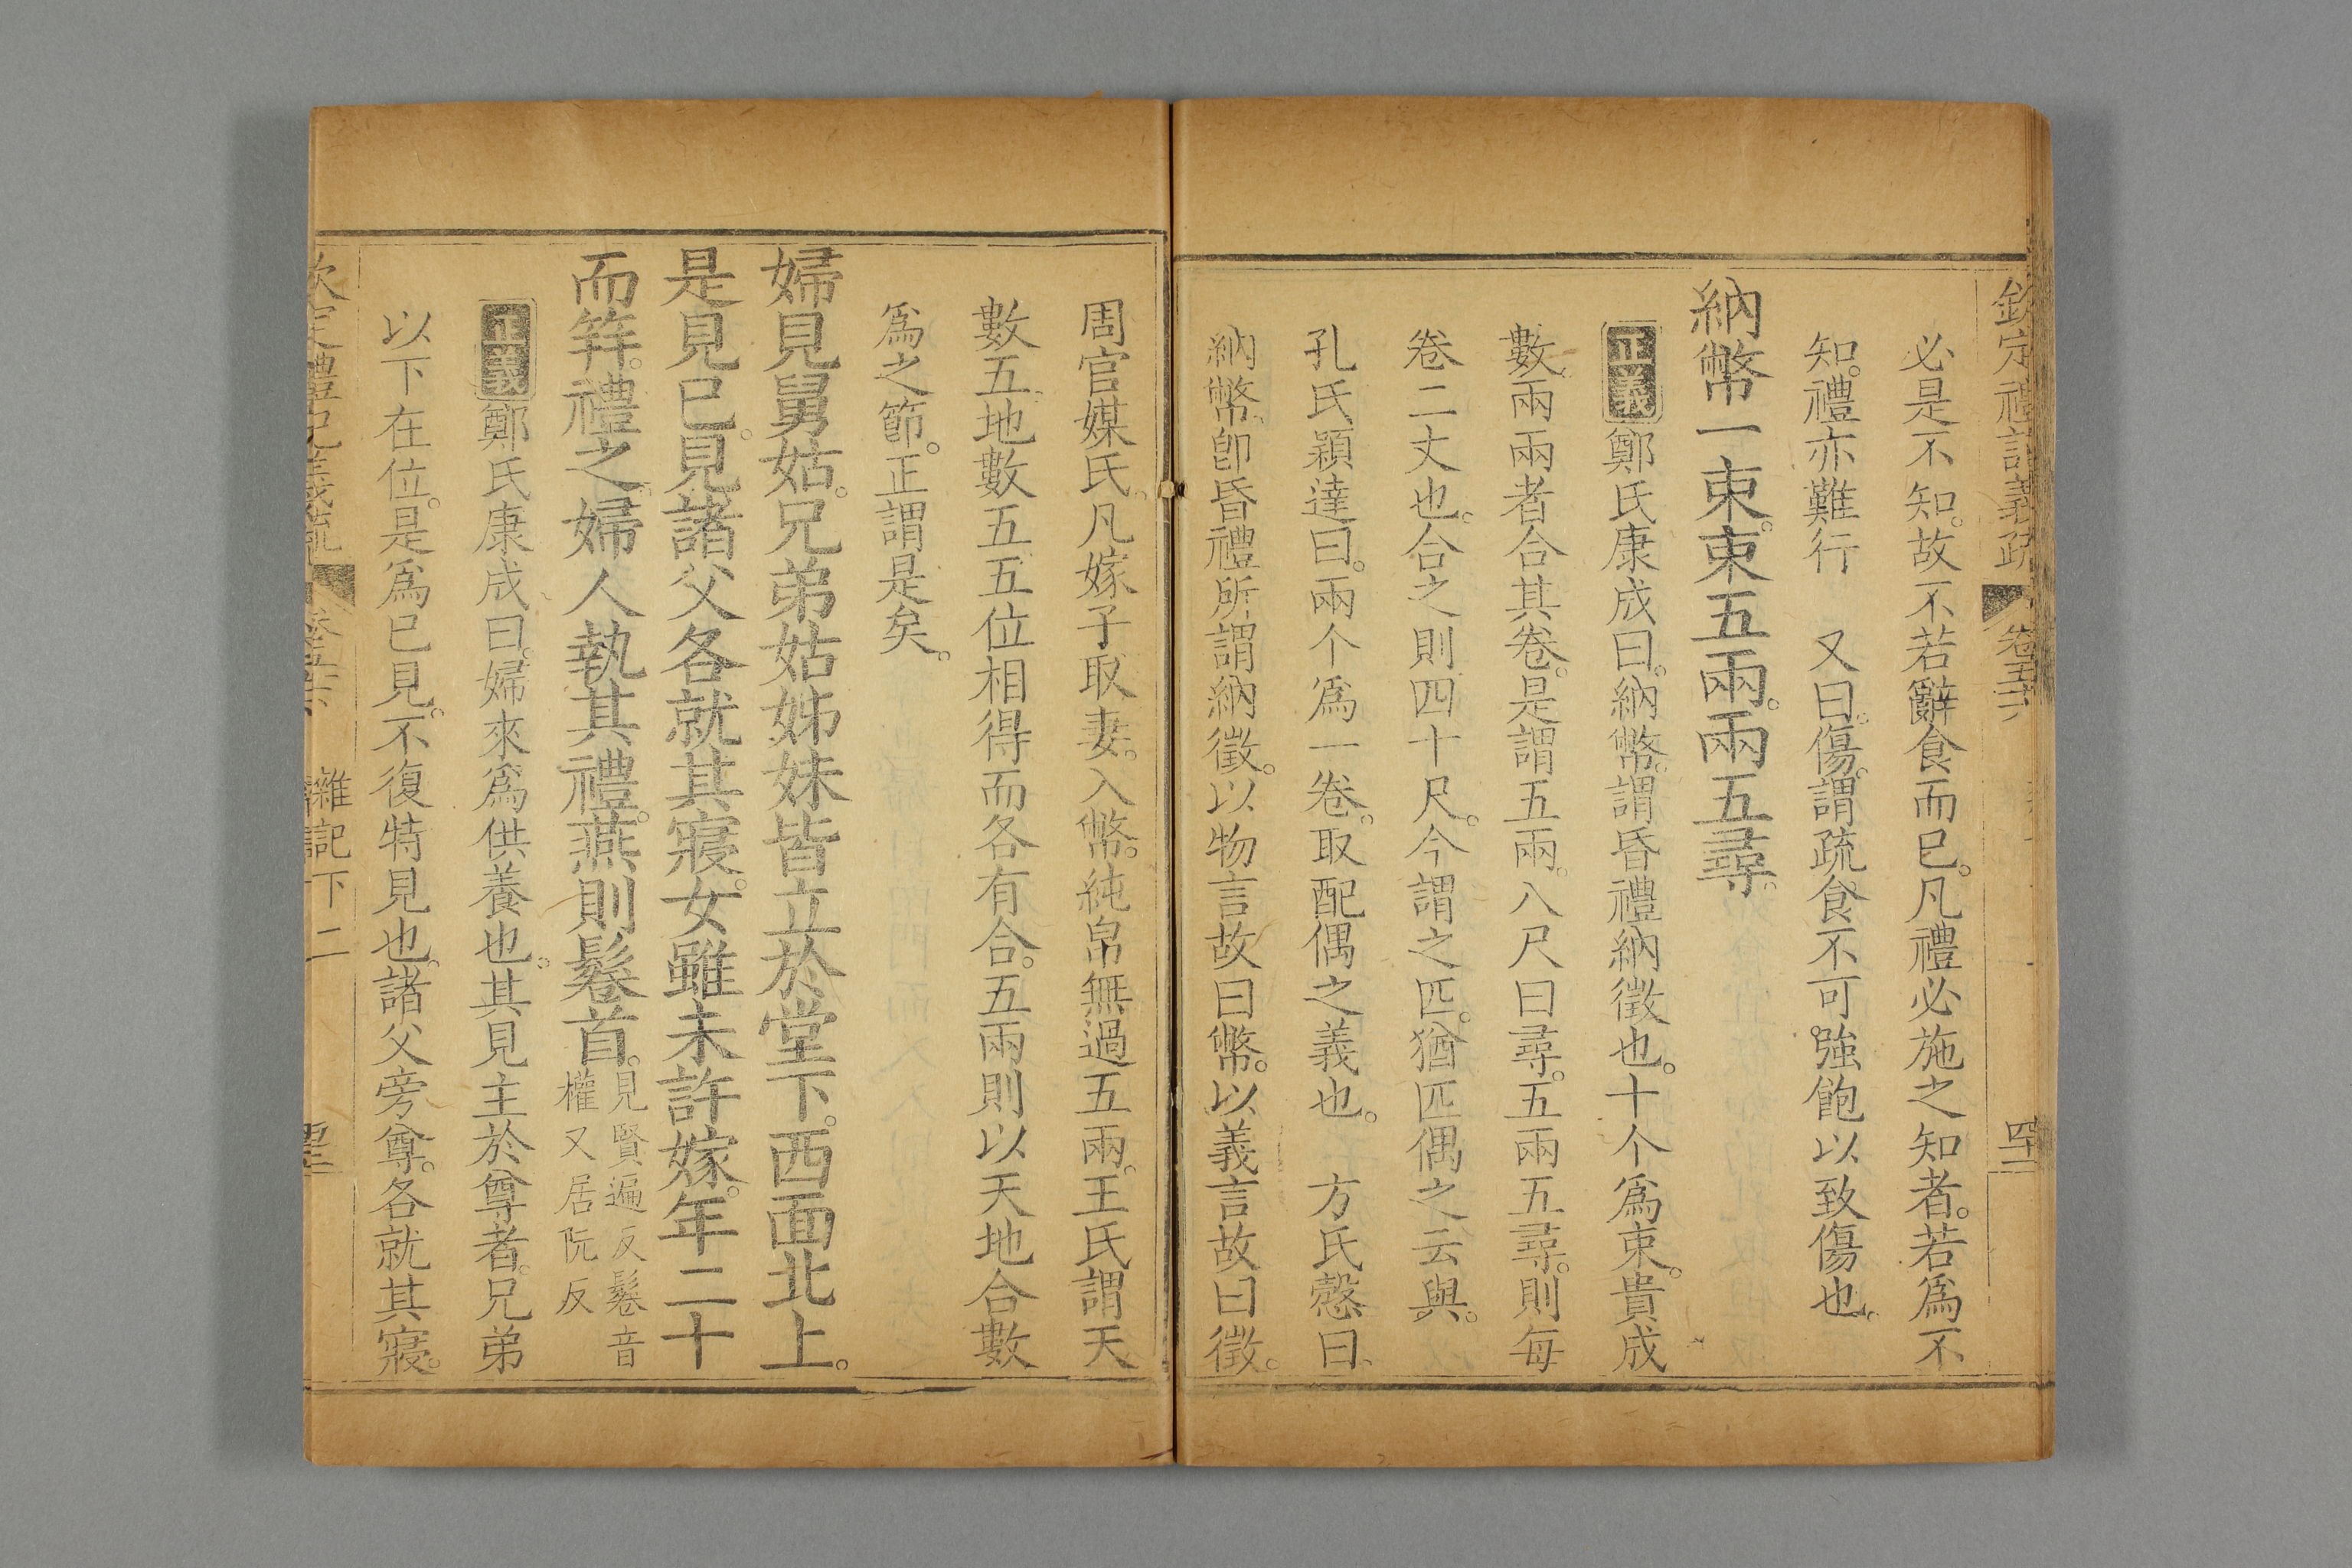 欽定禮記義疏 卷五十六 四十二
必是不知。故不若辭食而已。凡禮必施之知者。若爲不
知。禮亦難行 又曰。傷。謂疏食不可強飽以致傷也。
納幣一束。束五兩。兩五尋。
正義 鄭氏康成曰。納幣。謂昏禮納徵也。十个爲束。貴成
數。兩兩者合其卷。是謂五兩。八尺曰尋。五兩五尋。則每
卷二丈也。合之則四十尺。今謂之匹。猶匹偶之云與。
孔氏穎達曰。兩个爲一卷。取配偶之義也。 方氏慤曰、
納幣、卽昏禮所謂納徵。以物言故曰幣。以義言故曰徵。
周官媒氏、凡嫁子取妻。入幣。純帛無過五兩。王氏謂天
數五、地數五五位相得而各有合。五兩則以天地合數
爲之節。正謂是矣。
婦見舅姑。兄弟姑姊妹皆立於堂下。西面北上。
是見已。見諸父各就其寢。女雖未許嫁。年二十
而笄。禮之、婦人執其禮。燕則鬈首。見賢遍反鬈音權又居阮反
正義 鄭氏康成曰。婦來爲供養也。其見主於尊者。兄弟
以下在位。是爲已見。不復特見也。諸父旁尊。各就其寢。
欽定禮記義疏 卷五十六 雜記下二